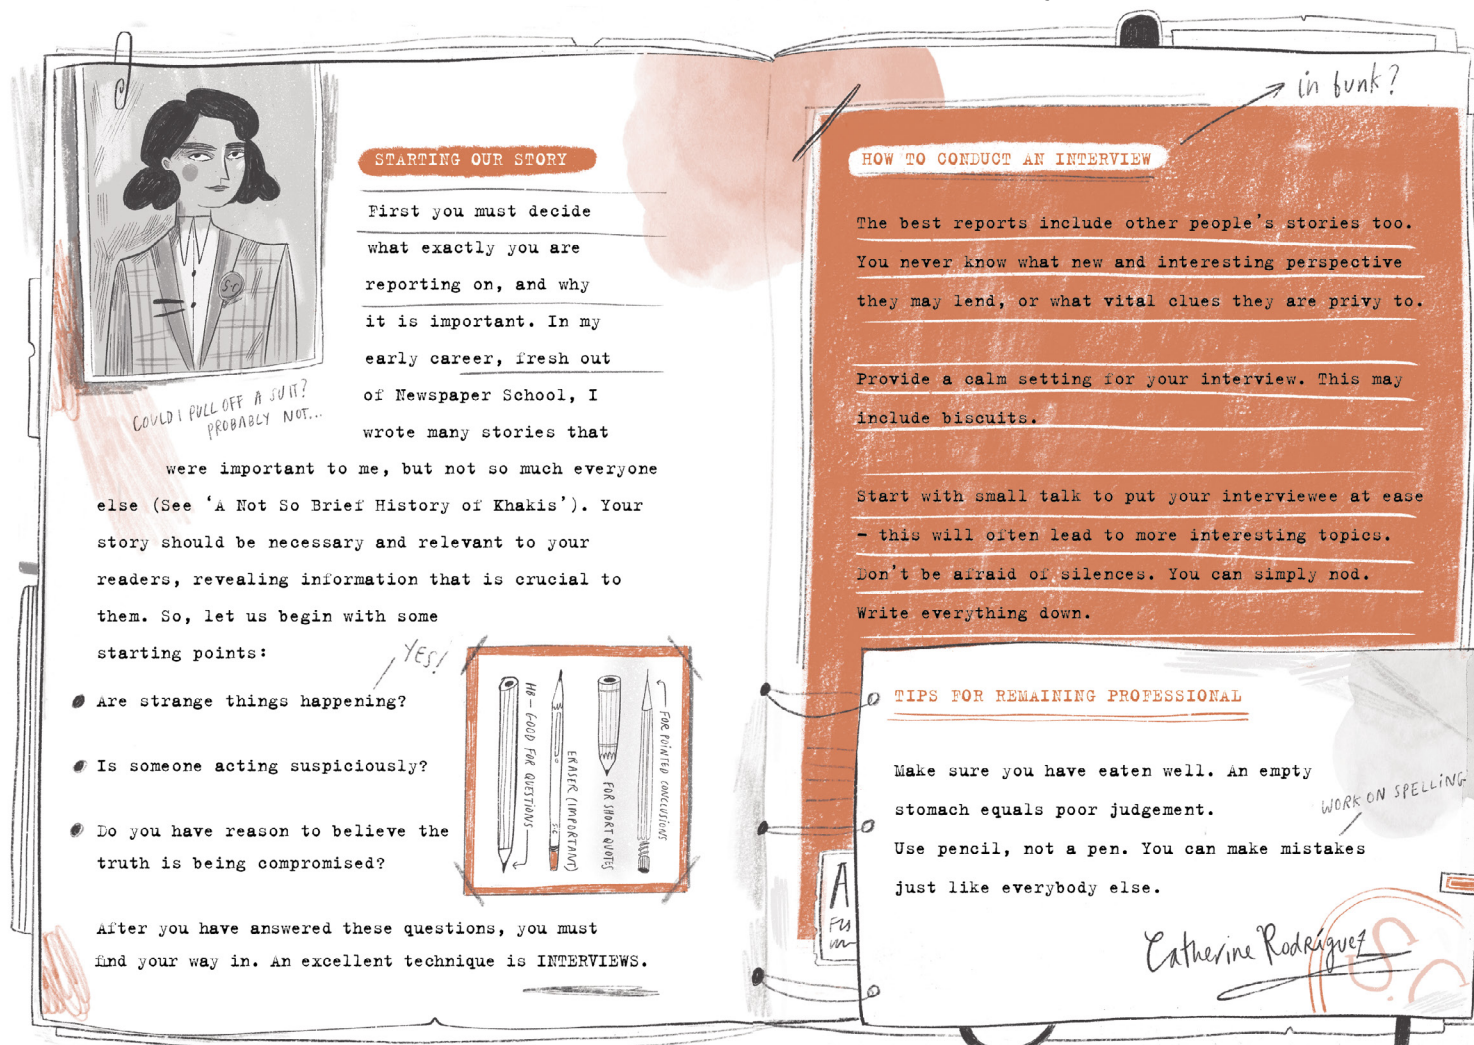 STARTING OUR STORY
First you must decide
what exactly you are
reporting on, and why
it is important. In my
early career, fresh out
of Newspaper School, I
wrote many stories that
were important to me, but not so much everyone
else (See ‘A Not So Brief History of Khakis’). Your
story should be necessary and relevant to your
readers, revealing information that is crucial to
them. So, let us begin with some
starting points:
YES!
Are strange things happening?
Is someone acting suspiciously?
Do you have reason to believe the
truth is being compromised?
After you have answered these questions, you must
find your way in. An excellent technique is INTERVIEWS.
S.C
COULD I PULL OFF A SUIT?
PROBABLY NOT...
HB – GOOD FOR QUESTIONS
ERASER (IMPORTANT)
S.C
FOR SHORT QUOTES
FOR POINTED CONCLUSIONS
in bunk?
HOW TO CONDUCT AN INTERVIEW
The best reports include other people’s stories too.
You never know what new and interesting perspective
they may lend, or what vital clues they are privy to.
Provide a calm setting for your interview. This may
include biscuits.
Start with small talk to put your interviewee at ease
– this will often lead to more interesting topics.
Don’t be afraid of silences. You can simply nod.
Write everything down.
TIPS FOR REMAINING PROFESSIONAL
Make sure you have eaten well. An empty
stomach equals poor judgement.
WORK ON SPELLING
Use pencil, not a pen. You can make mistakes
just like everybody else.
Catherine Rodríguez
S.C
A